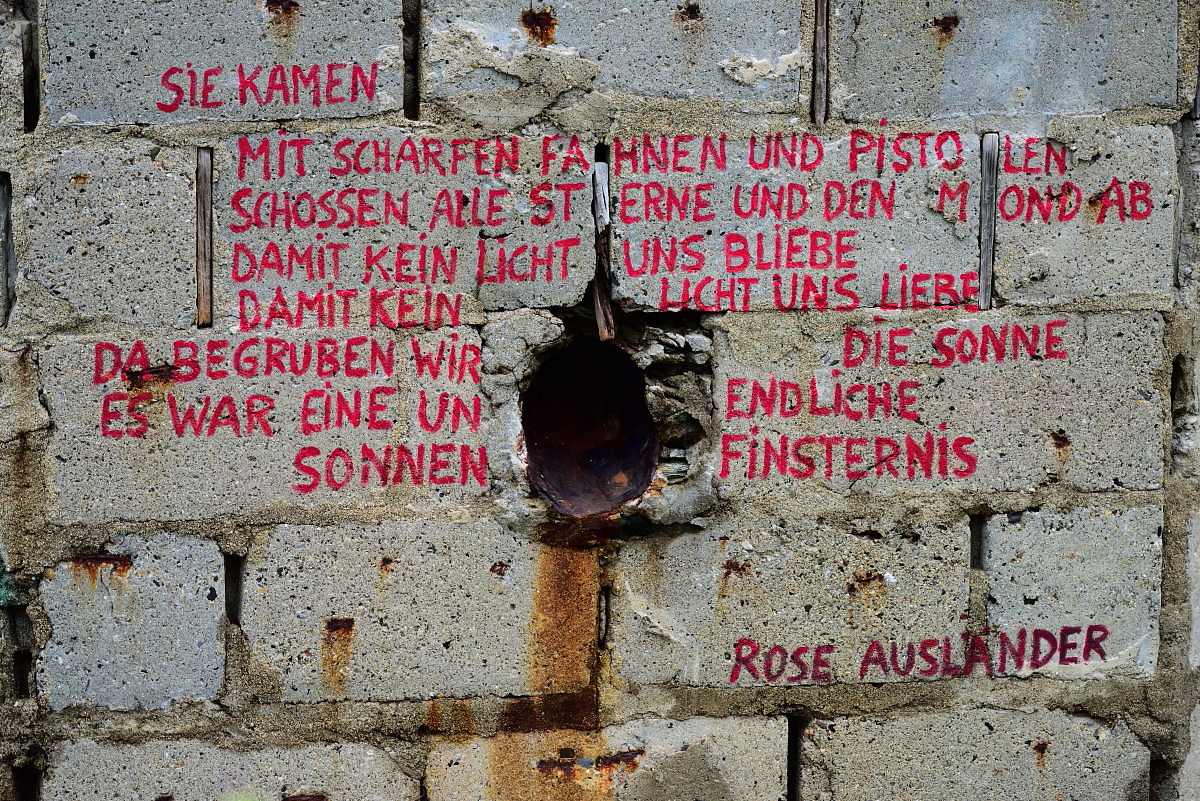 SIE KAMEN
MIT SCHARFEN FAHNEN UND PISTOLEN
SCHOSSEN ALLE STERNE UND DEN MOND AB
DAMIT KEIN LICHT UNS BLIEBE
DAMIT KEIN LICHT UNS LIEBE
DA BEGRUBEN WIR DIE SONNE
ES WAR EINE UNENDLICHE
SONNENFINSTERNIS
ROSE AUSLÄNDER